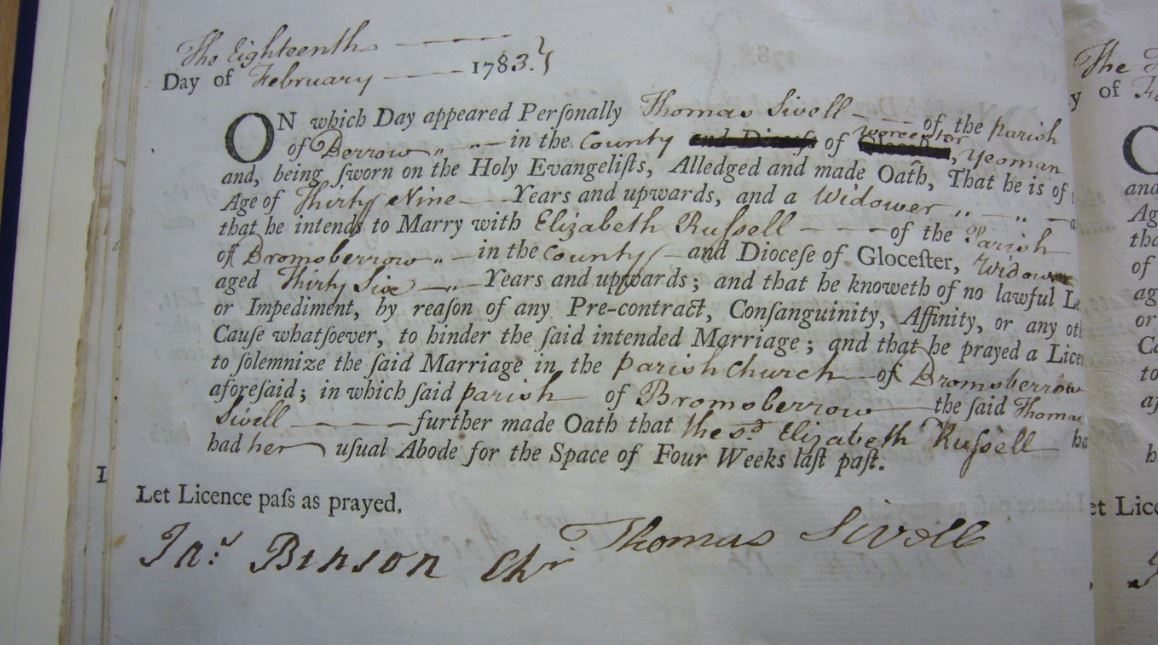 The Eighteenth
Day of February 1783.
ON which Day appeared Perſonally Thomas Sivell of the Parish
of Berrow in the County and Dioceſs of Worcester, Yeoman
and, being ſworn on the Holy Evangeliſts, Alledged and made Oath, That he is of
Age of Thirty Nine Years and upwards, and a Widower
that he intends to Marry with Elizabeth Ruſsell of the Parish
of Bromsberrow in the County and Dioceſe of Gloceſter, Widow
aged Thirty Six Years and upwards; and that he knoweth of no lawful
or Impediment, by reaſon of any Pre-contract, Conſanguinity, Affinity, or any
Cauſe whatſoever, to hinder the ſaid intended Marriage; and that he prayed a
to ſolemnize the ſaid Marriage in the Parish Church of Bromsberrow
aforeſaid; in which ſaid parish of Bromsberrow the ſaid Thomas
Sivell further made Oath that the sd. Elizabeth Ruſsell
had her uſual Abode for the Space of Four Weeks laſt paſt.
Let Licence paſs as prayed.
Jns. Benson Chr. Thomas Sivell